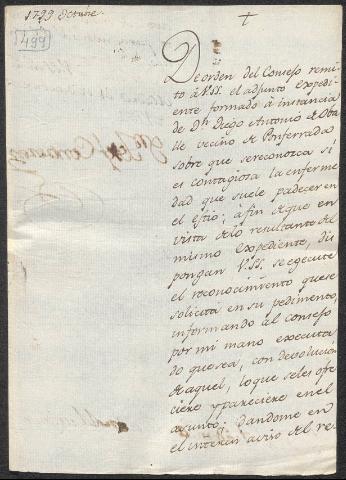 1799 Octubre
1499
+
De orden del Consejo remi
to à V.SS. el adjunto expedi
ente formado à instancia
de Dn. Diego Antonio de Oba
lle vecino de Ponferrada
sobre que se reconozca si
es contagiosa la enferme
dad que suele padecer en
el estio; à fin de que en
vista de lo resultante del
mismo expediente, dis
pongan V.SS. se egecute
el reconocimiento que se
solicita en su pedimento,
informando al Consejo
por mi mano executa
do que sea, con devolucion
de aquel, lo que seles ofre
ciere y pareciere en el
asunto; dandome en
el interin aviso del re